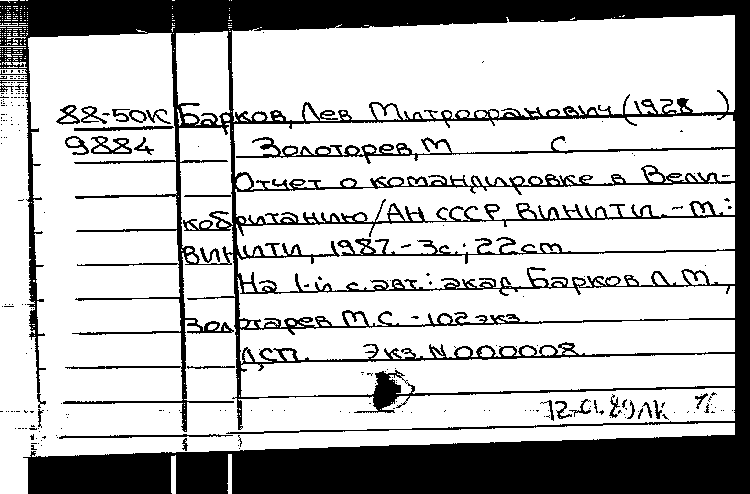 88-50К Барков, Лев Митрофанович (1928 ),
9884 Золоторев, М С
Отчет о командировке в Вели-
кобританию/АН СССР, ВИНИТИ. - М.:
ВИНИТИ, 1987. - 3с.; 22см.
На 1-й с. авт.: акад. Барков Л.М.,
Золотарев М.С. - 102экз.
ДСП. Экз. N000008.
12.01.89ЛК